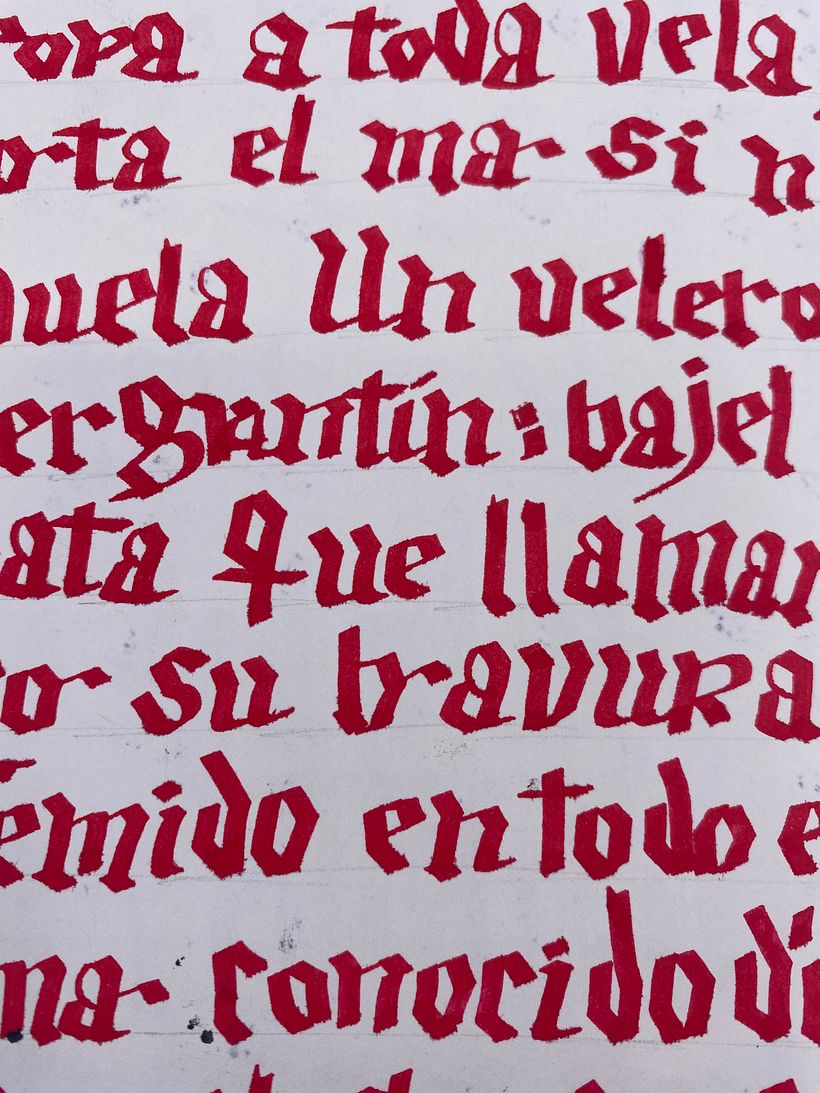 popa a toda vela
orta el mar si n
vuela Un velero
ergrantín: bajel
ata que llaman
or su bravura
emido en todo e
mar conocido d